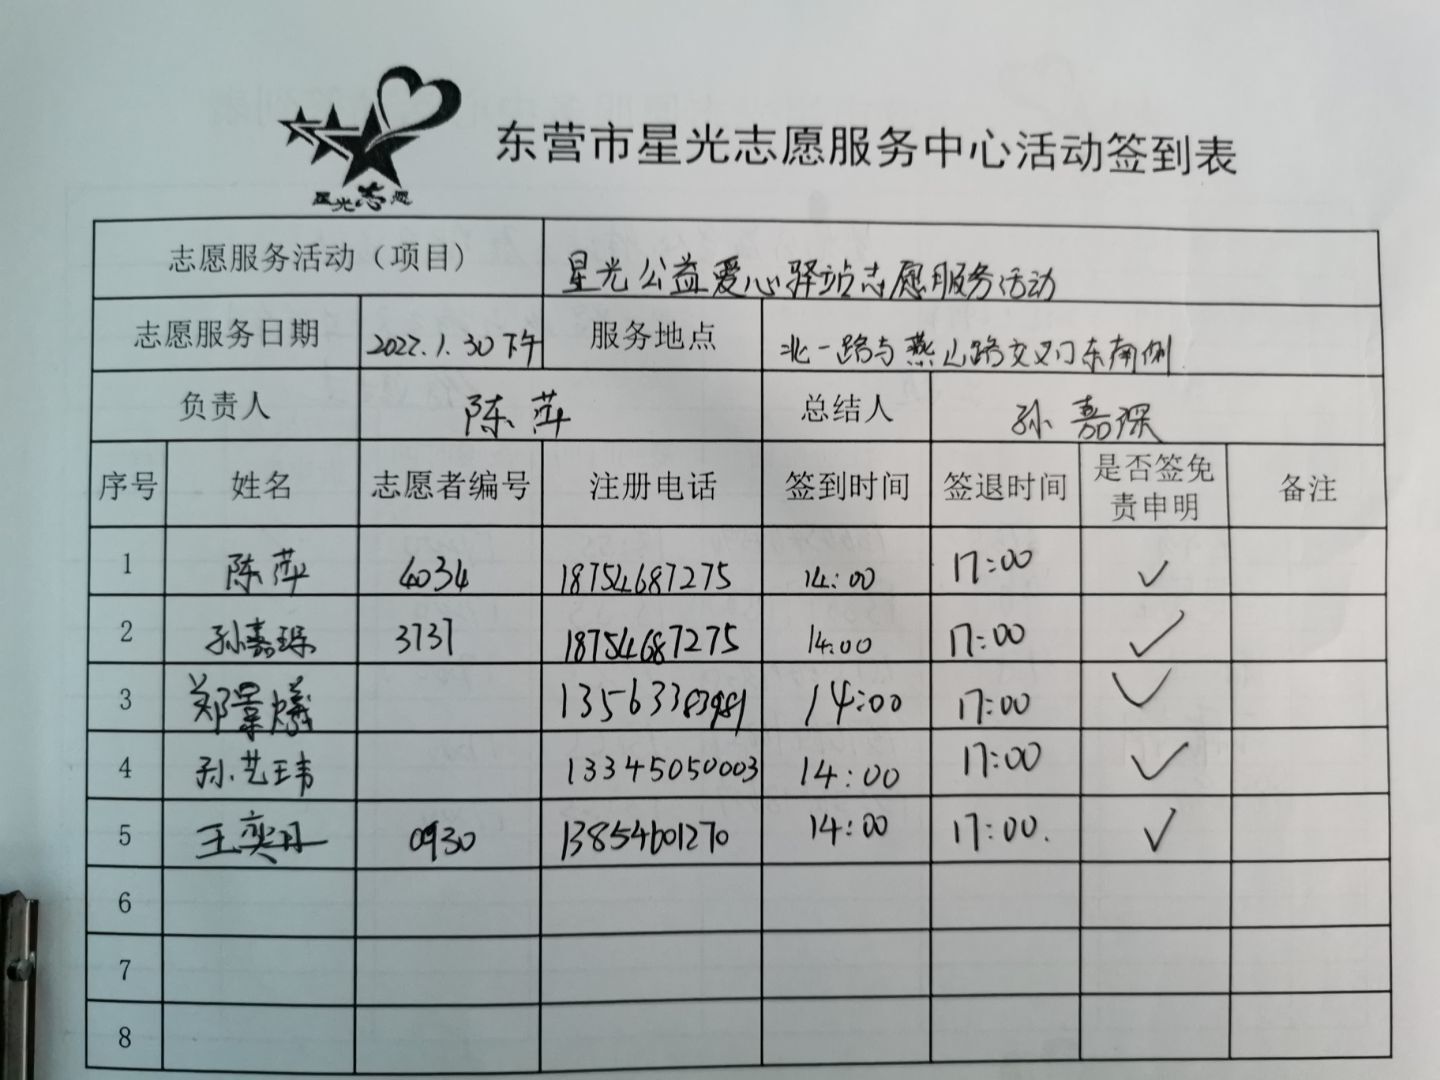 星光志愿
东营市星光志愿服务中心活动签到表
志愿服务活动（项目） 星光公益爱心驿站志愿服务活动
志愿服务日期 2022.1.30下午 服务地点 北一路与燕山路交叉口东南侧
负责人 陈萍 总结人 孙嘉琛
序号 姓名 志愿者编号 注册电话 签到时间 签退时间 是否签免责申明 备注
1 陈萍 4034 18754687275 14:00 17:00 ✓
2 孙嘉琛 3737 18754687275 14:00 17:00 ✓
3 郑景曦 13563383981 14:00 17:00 ✓
4 孙艺玮 13345050003 14:00 17:00 ✓
5 王奕丹 0930 13854601270 14:00 17:00. ✓
6
7
8